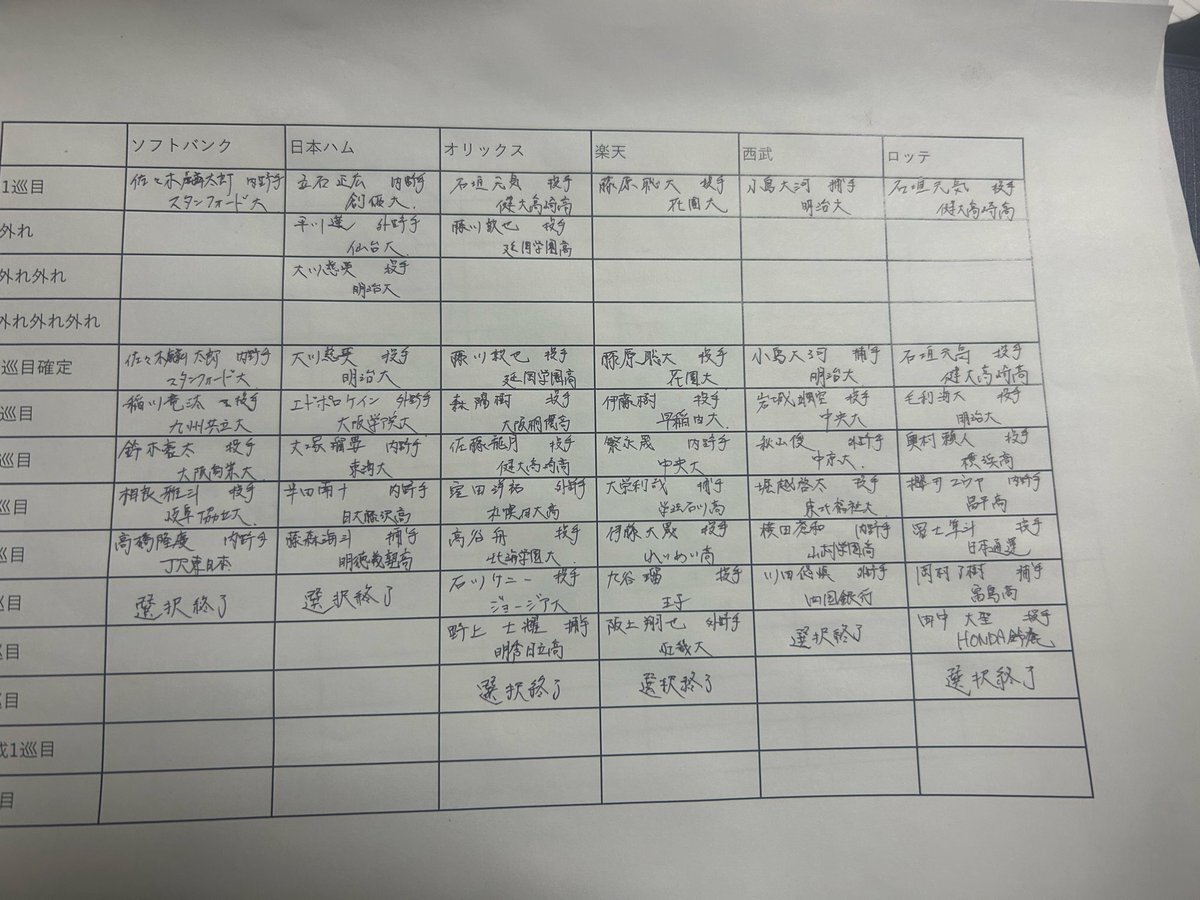 ソフトバンク 日本ハム オリックス 楽天 西武 ロッテ
1巡目 佐々木麟太郎 内野手 立石正広 内野手 石垣元気 投手 藤原聡大 投手 小島大河 捕手 石垣元気 投手
スタンフォード大 創価大 健大高崎高 花園大 明治大 健大高崎高
外れ 平川蓮 外野手 藤川敦也 投手
仙台大 延岡学園高
外れ外れ 大川慈英 投手
明治大
外れ外れ外れ
巡目確定 佐々木麟太郎 内野手 大川慈英 投手 藤川敦也 投手 藤原聡大 投手 小島大河 捕手 石垣元気 投手
スタンフォード大 明治大 延岡学園高 花園大 明治大 健大高崎高
巡目 稲川竜汰 投手 エドポロケイン 外野手 森陽樹 投手 伊藤樹 投手 岩城颯空 投手 毛利海大 投手
九州共立大 大阪学院大 大阪桐蔭高 早稲田大 中央大 明治大
巡目 鈴木豪太 投手 大塚瑠晏 内野手 佐藤龍月 投手 繁永晟 内野手 秋山俊 外野手 奥村頼人 投手
大阪商業大 東海大 健大高崎高 中央大 中京大 横浜高
巡目 相良雅斗 投手 半田南十 内野手 窪田洋祐 外野手 大栄利哉 捕手 堀越啓太 投手 櫻井ユウヤ 内野手
岐阜協立大 日大藤沢高 札幌日大高 学法石川高 東北福祉大 昌平高
巡目 高橋隆慶 内野手 藤森海斗 捕手 高谷舟 投手 伊藤大晟 投手 横田蒼和 内野手 冨士隼斗 投手
JR東日本 明徳義塾高 北海学園大 れいめい高 山村学園高 日本通運
巡目 選択終了 選択終了 石川ケニー 投手 九谷瑠 投手 川田悠慎 外野手 岡村了樹 捕手
ジョージア大 王子 四国銀行 富島高
巡目 野上士耀 捕手 阪上翔也 外野手 選択終了 田中大聖 投手
明秀日立高 近畿大 HONDA鈴鹿
巡目 選択終了 選択終了 選択終了
成1巡目
目